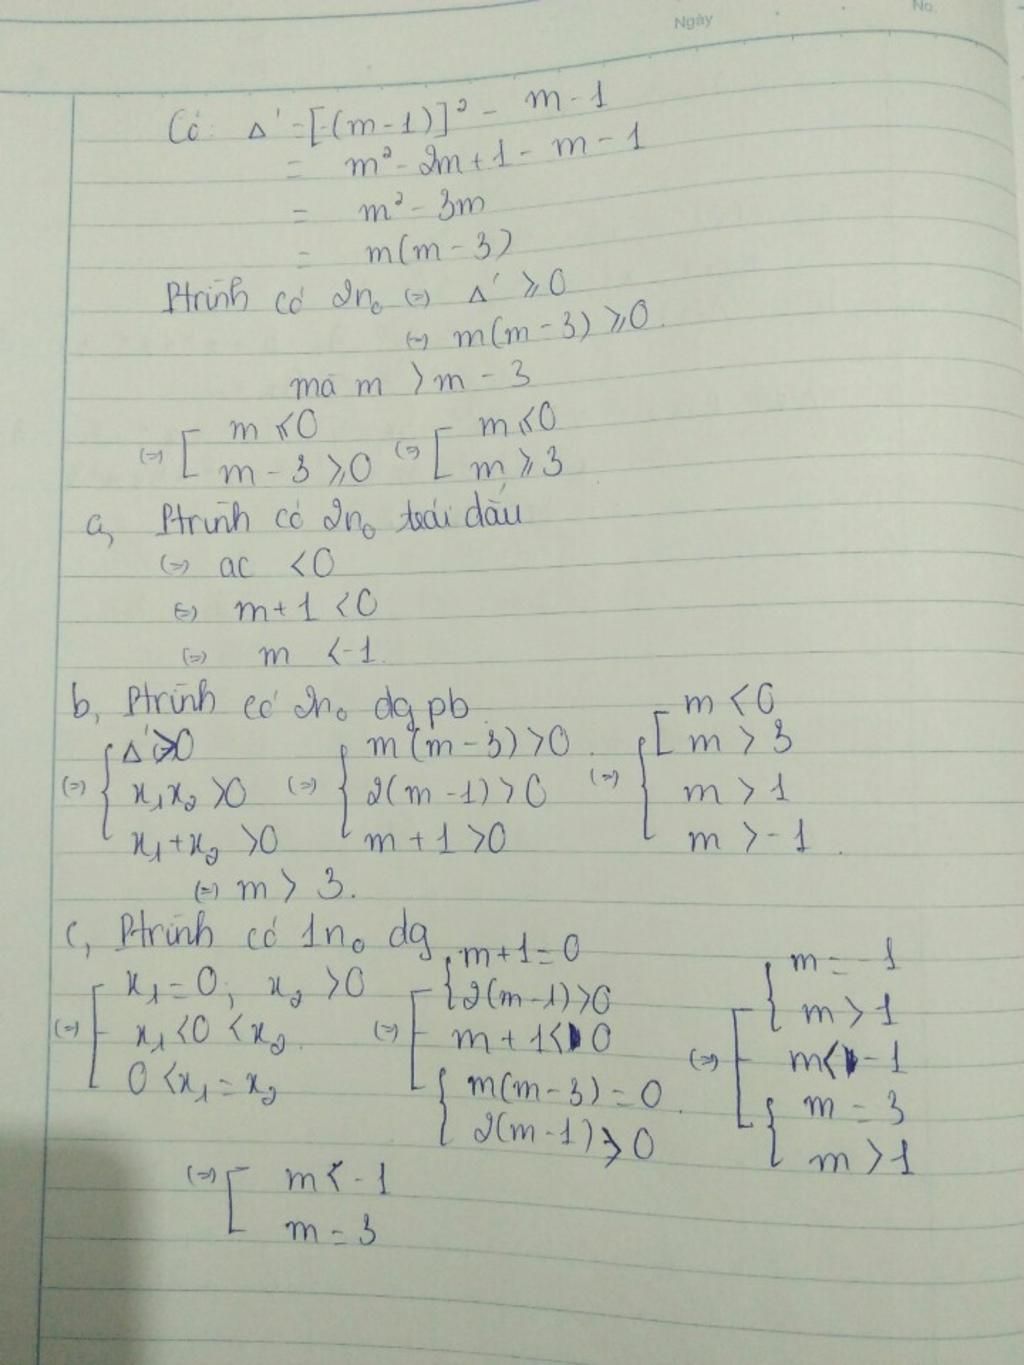 Ngày
No.
Có: Δ' = [-(m-1)]² - m - 1
= m² - 2m + 1 - m - 1
= m² - 3m
= m(m - 3)
Ptrình có 2n₀ (=) Δ' ⩾ 0
(=) m(m - 3) ⩾ 0.
mà m > m - 3
(=) [ m ⩽ 0 (=) [ m ⩽ 0
m - 3 ⩾ 0 m ⩾ 3
a, Ptrình có 2n₀ trái dấu
(=) ac < 0
(=) m + 1 < 0
(=) m < -1.
b, Ptrình có 2n₀ dg pb
(=) { Δ' > 0 (=) { m(m - 3) > 0 (=) { [ m < 0
m > 3
x₁x₂ > 0 2(m - 1) > 0 m > 1
x₁ + x₂ > 0 m + 1 > 0 m > -1.
(=) m > 3.
c, Ptrình có 1n₀ dg
(=) [ x₁ = 0; x₂ > 0 (=) [ { m + 1 = 0 (=) [ { m = -1
2(m - 1) > 0 m > 1
x₁ < 0 < x₂ m + 1 < 0 m < -1
0 < x₁ = x₂ { m(m - 3) = 0 { m = 3
2(m - 1) > 0 m > 1
(=) [ m < -1
m = 3